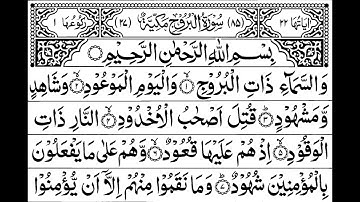 اٰيَاتُهَا ٢٢ (٨٥) سُوْرَةُ الْبُرُوْجِ مَكِّيَّةٌ (٢٧) رُكُوْعُهَا ١
بِسْمِ اللهِ الرَّحْمٰنِ الرَّحِيْمِ
وَالسَّمَآءِ ذَاتِ الْبُرُوْجِ ١ وَالْيَوْمِ الْمَوْعُوْدِ ٢ وَشَاهِدٍ
وَّمَشْهُوْدٍ ٣ قُتِلَ اَصْحٰبُ الْاُخْدُوْدِ ٤ النَّارِ ذَاتِ
الْوَقُوْدِ ٥ اِذْ هُمْ عَلَيْهَا قُعُوْدٌ ٦ وَّهُمْ عَلٰى مَا يَفْعَلُوْنَ
بِالْمُؤْمِنِيْنَ شُهُوْدٌ ٧ وَمَا نَقَمُوْا مِنْهُمْ اِلَّآ اَنْ يُّؤْمِنُوْا